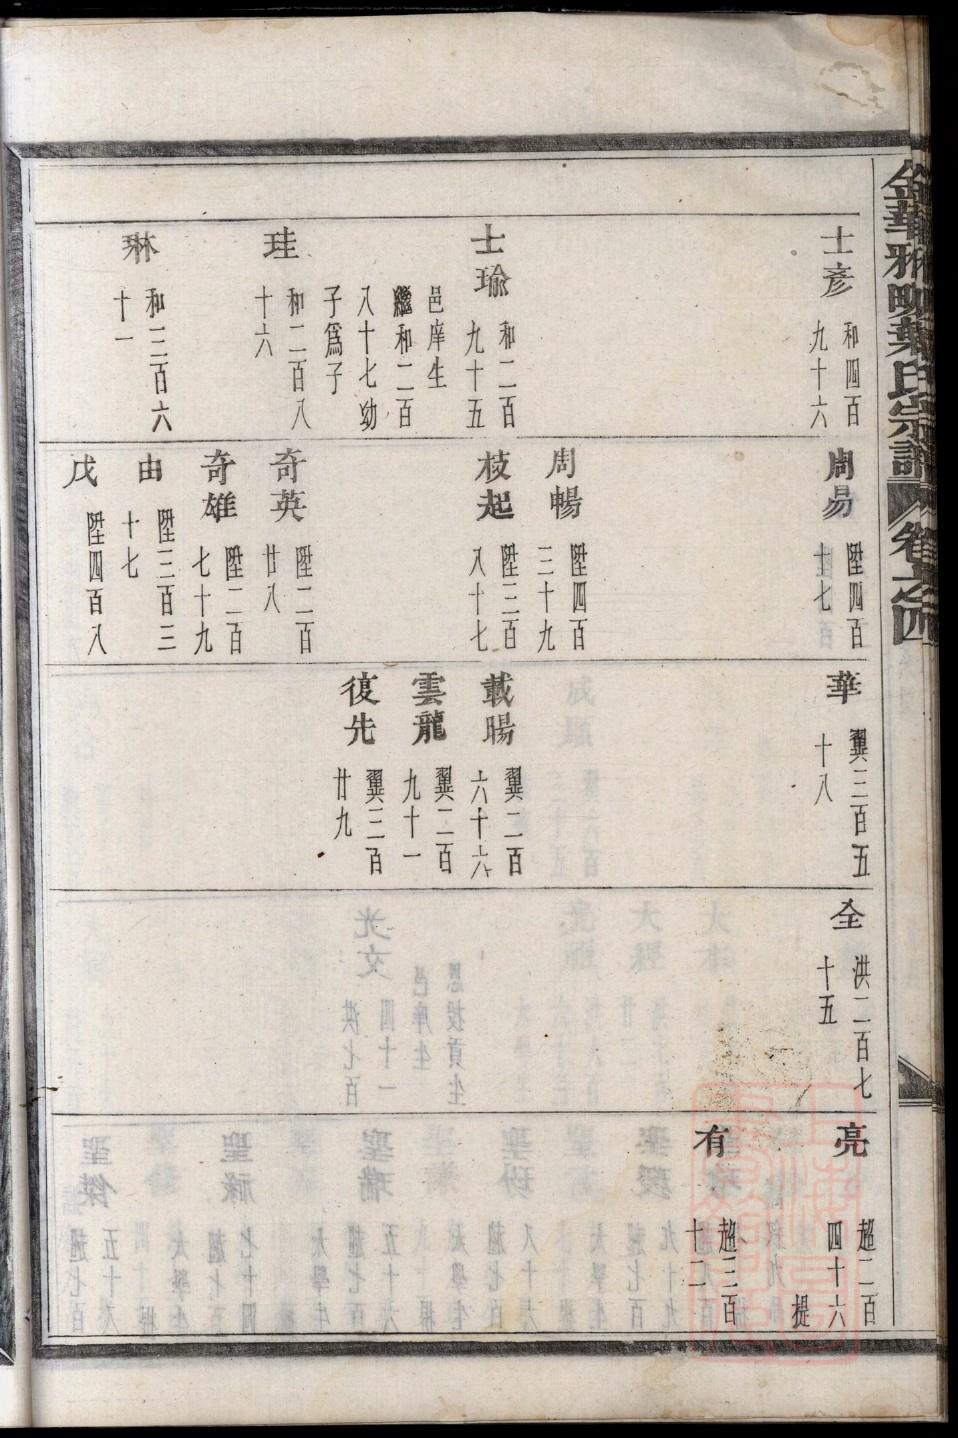 金華雅畈葉氏宗譜 卷之四
士彦 和四百
九十六
士瑜 和二百
九十五
邑庠生
繼和二百
八十七幼
子爲子
珪 和二百八
十六
琳 和三百六
十一
周易 陞四百
十七
周暢 陞四百
三十九
枝起 陞三百
八十七
奇英 陞二百
廿八
奇雄 陞二百
七十九
由 陞三百三
十七
戊 陞四百八
華 翼三百五
十八
載暘 翼二百
六十六
雲龍 翼二百
九十一
復先 翼三百
廿九
全 洪二百七
十五
亮 超二百
四十六
提
有 超三百
十二